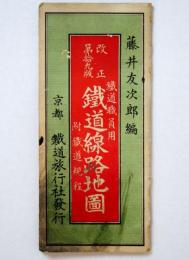 藤井友次郎編
改正
第拾九版
鐵道職員用
鐵道線路地圖
附鐵道規程
京都 鐵道旅行社發行